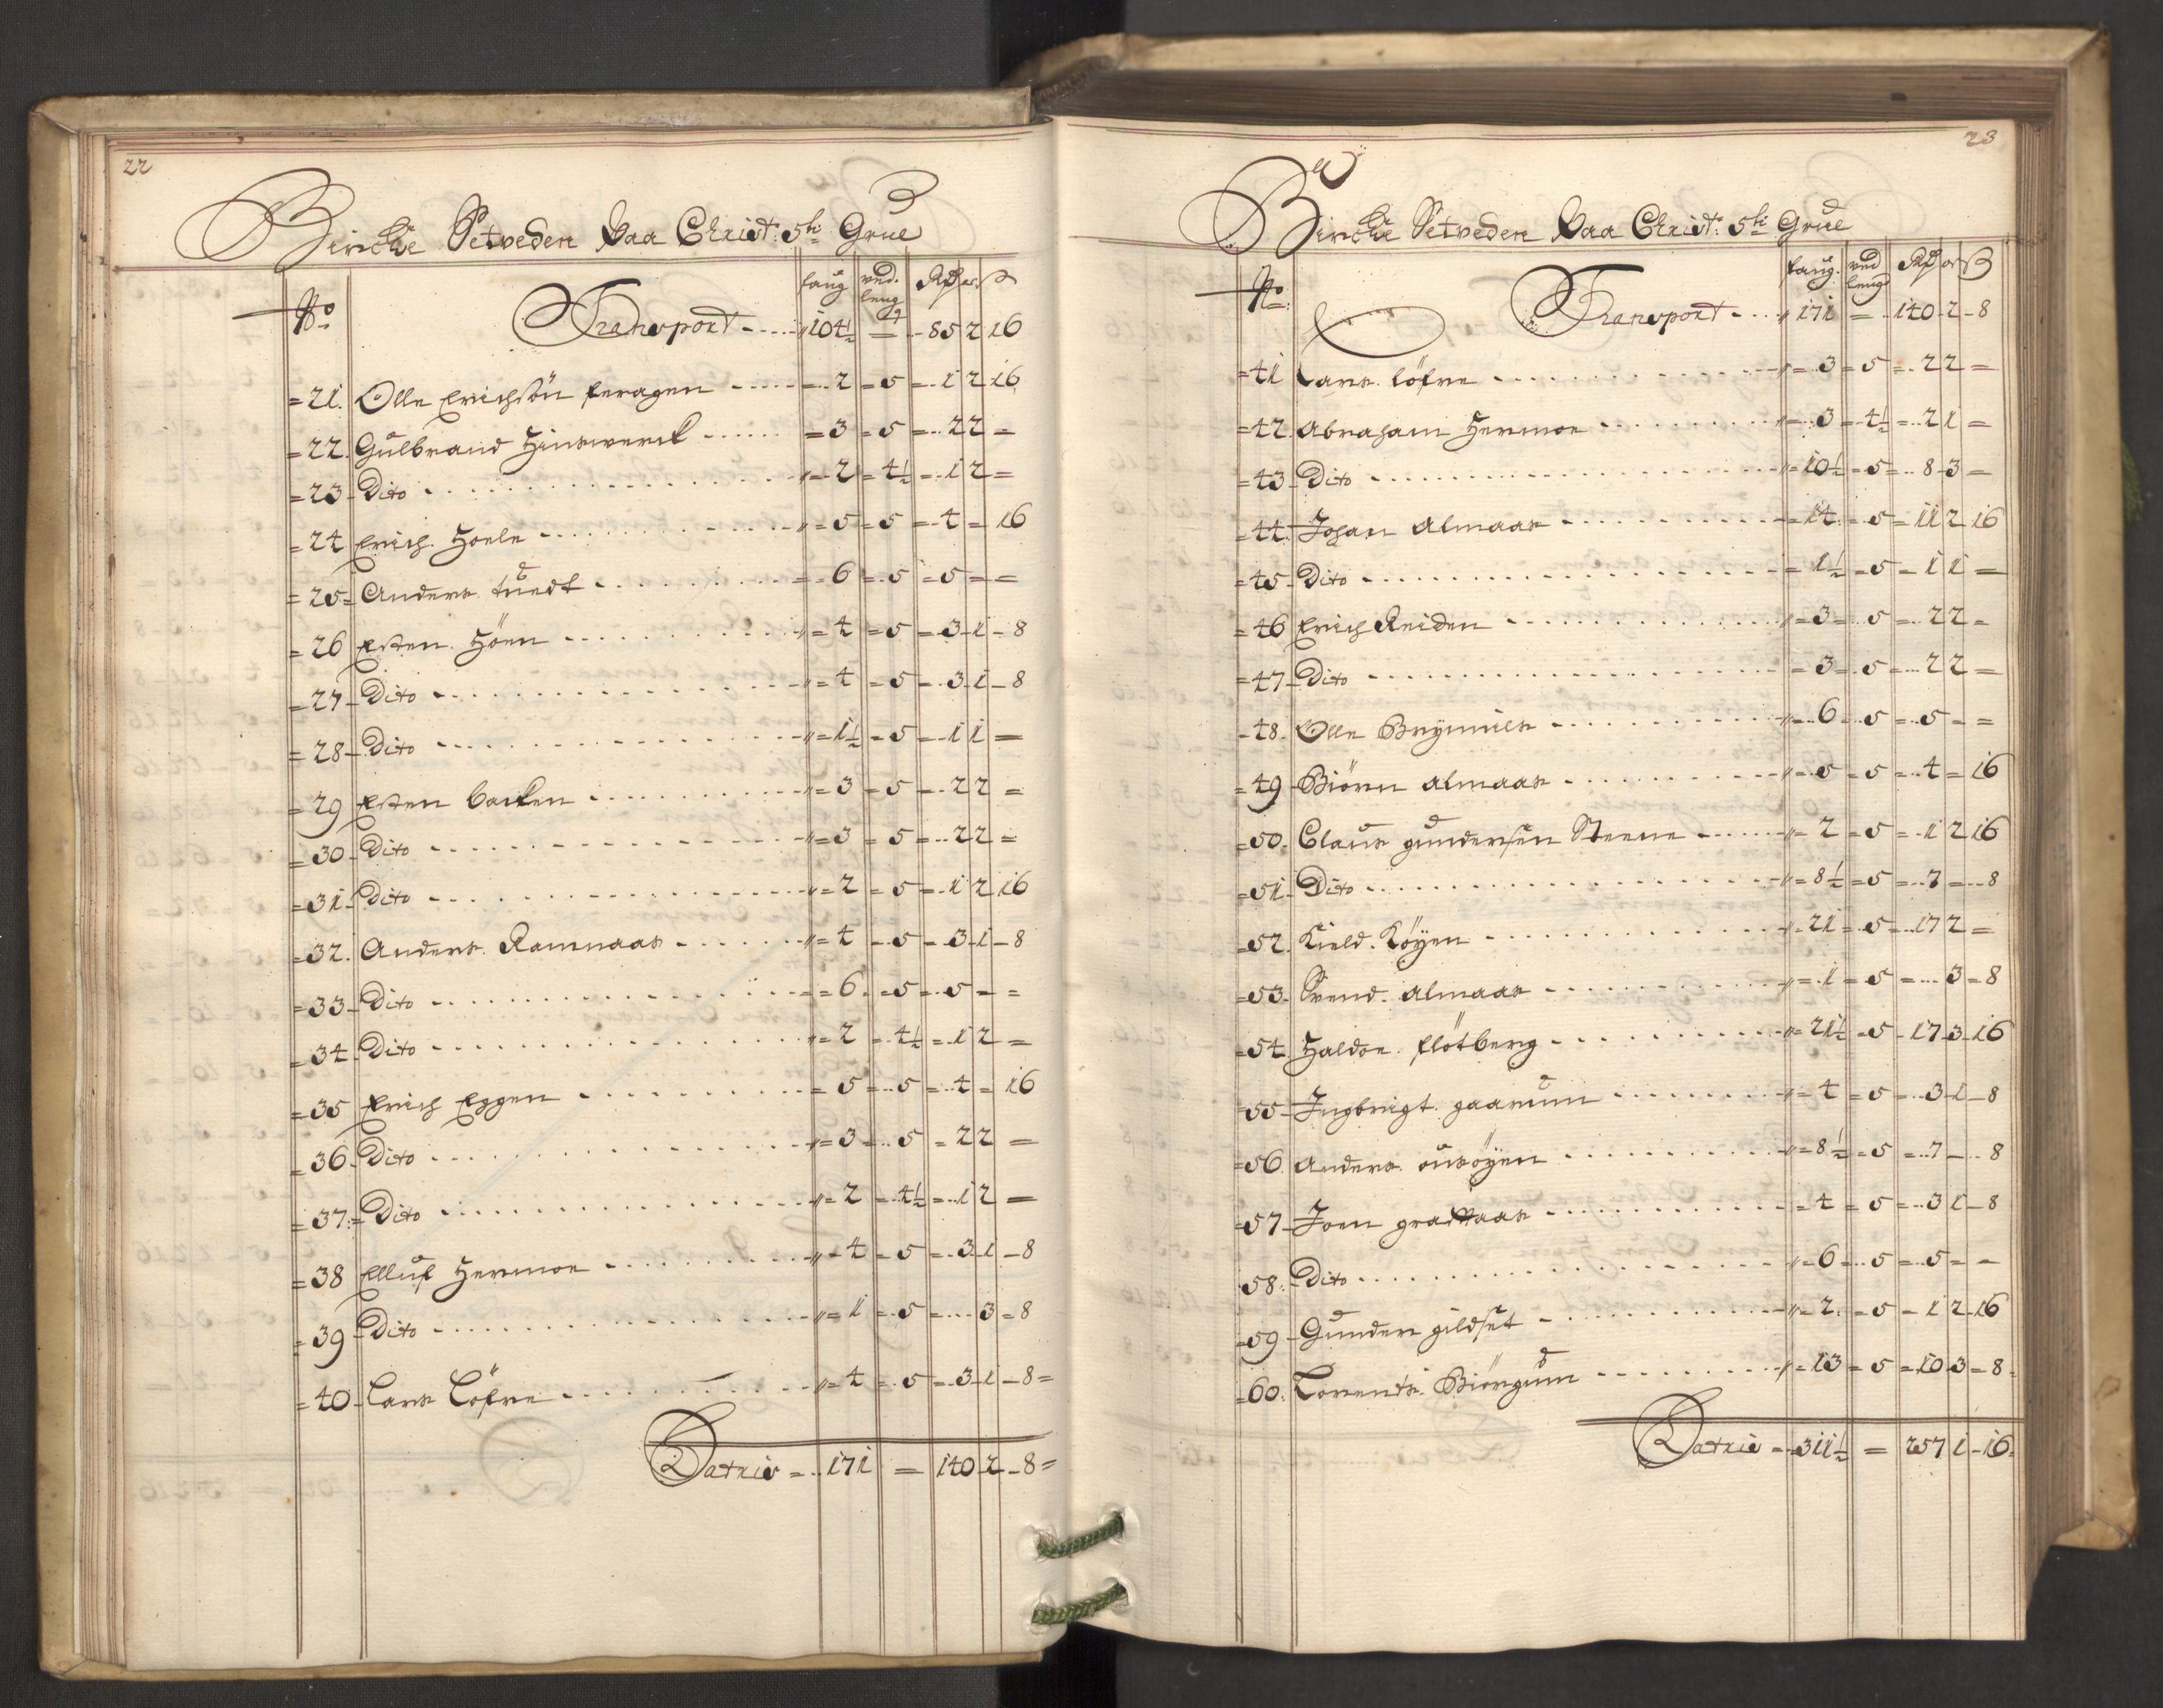 22
Bircke Setveden Paa Christ: 5ti Grue
No
faug ved. leng Rdr or ß
Transport 104½ = 85 2 16
21. Olle Erichsön feragen 2 5 1 2 16
22. Gulbrand Hinswerck 3 5 2 2 =
23 Dito 2 4½ 1 2 =
24 Erich Hoele 5 5 4 = 16
25 Anders tuedt 6 5 5 = =
26 Esten Höen 4 5 3 1 8
27 Dito 4 5 3 1 8
28 Dito 1½ 5 1 1 =
29 Esten backen 3 5 2 2 =
30 Dito 3 5 2 2 =
31 Dito 2 5 1 2 16
32. Anders Ramnaas 4 5 3 1 8
33 Dito 6 5 5 = =
34 Dito 2 4½ 1 2 =
35 Erich Eggen 5 5 4 = 16
36 Dito 3 5 2 2 =
37 Dito 2 4½ 1 2 =
38 Elluf Hermoe 4 5 3 1 8
39 Dito 1 5 3 8
40 Lars Löfve 4 5 3 1 8
Latris 171 = 140 2 8
23
Bircke Setveden Paa Christ: 5ti Grue
No:
faug. ved leng Rdr or ß
Transport 171 = 140 2 8
41 Lars löfve 3 5 2 2 =
42. Abraham Hermoe 3 4½ 2 1 =
43 Dito 10½ 5 8 3 =
44. Johan Almaas 14 5 11 2 16
45 Dito 1½ 5 1 1 =
46 Erich Reiden 3 5 2 2 =
47 Dito 3 5 2 2 =
48. Olle 6 5 5 = =
49 Biörn Almaas 5 5 4 = 16
50. Claus gundersen Steene 2 5 1 2 16
51 Dito 8½ 5 7 = 8
52. Kield Köyen 21 5 17 2 =
53. Svend Almaas 1 5 3 8
54 Haldoe flötberg 21½ 5 17 3 16
55 Ingbrigt gaarum 4 5 3 1 8
56. Anders ousöyen 8½ 5 7 = 8
57 Joen 4 5 3 1 8
58. Dito 6 5 5 = =
59 Gunder gildset 2 5 1 2 16
60. Lorents Biörgum 13 5 10 3 8
Latris 311½ = 257 1 16